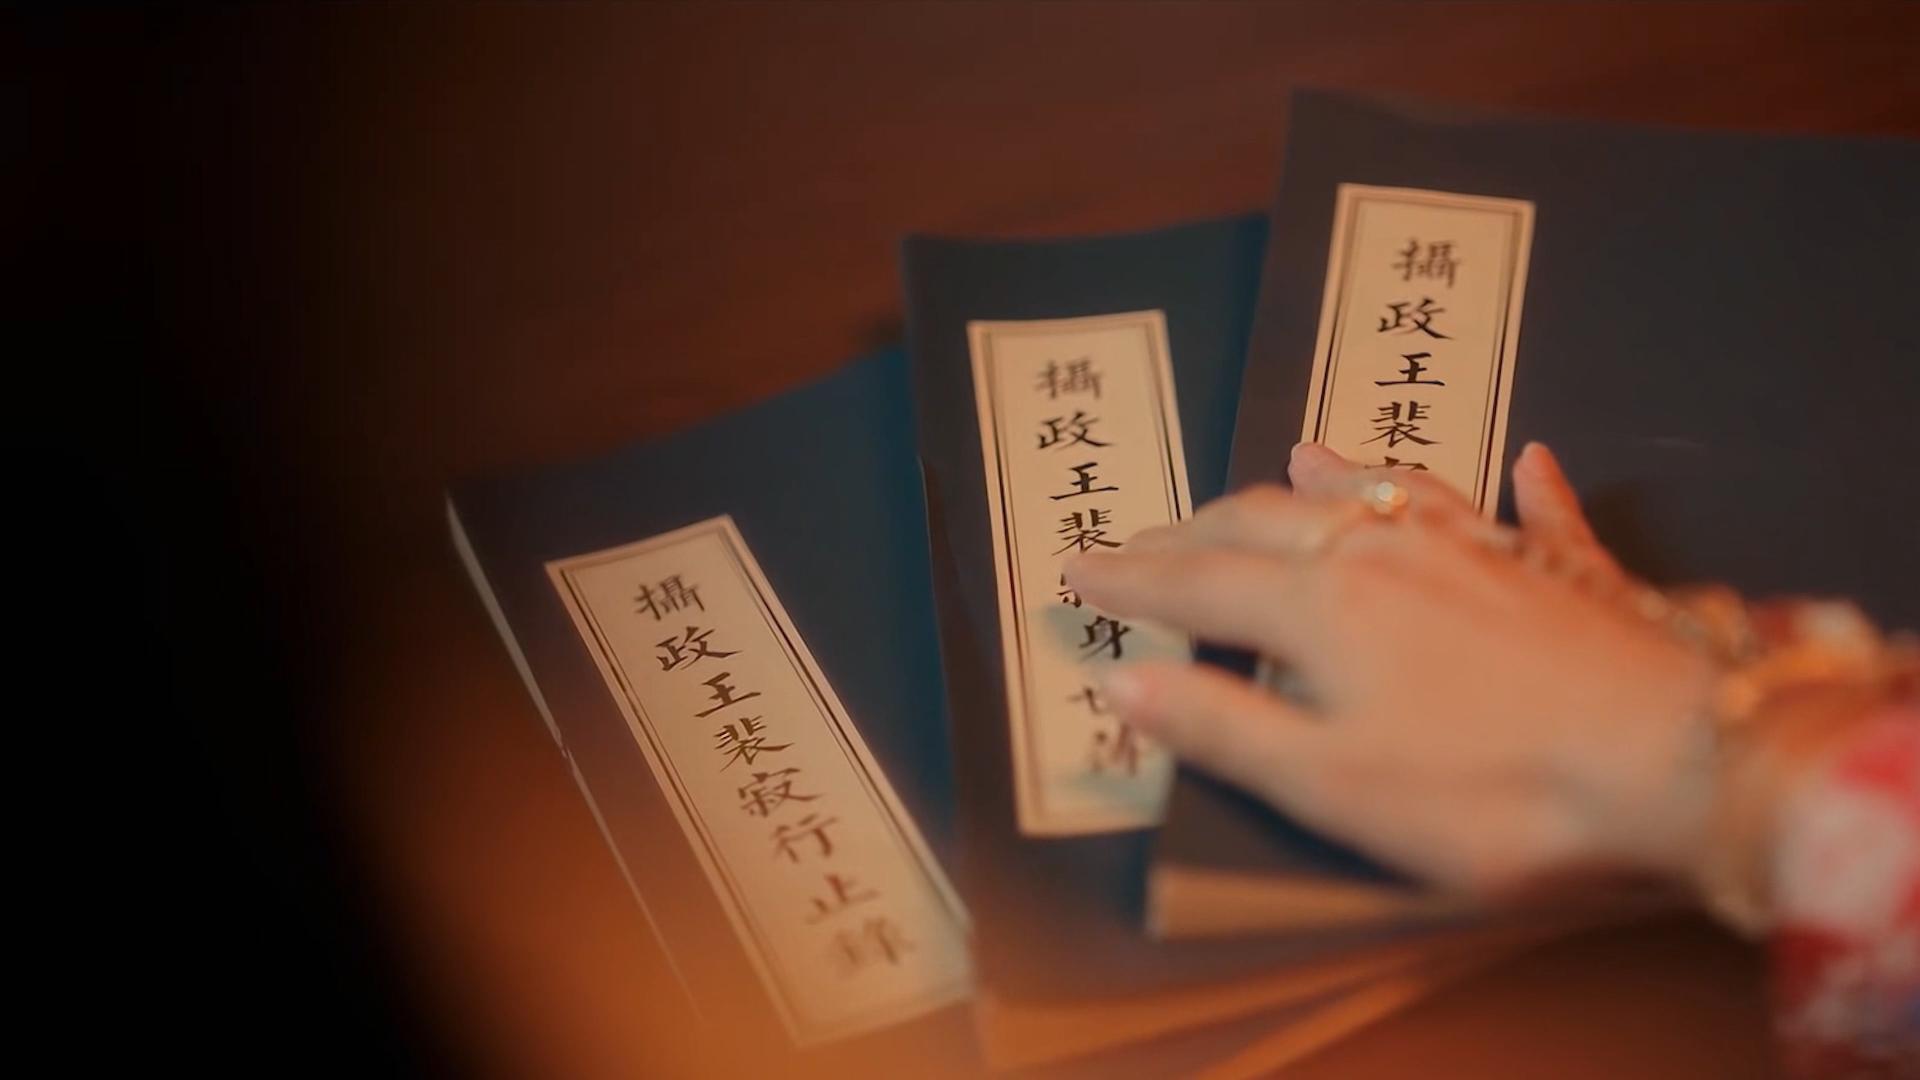 攝政王裴寂行止錄
攝政王裴身
攝政王裴